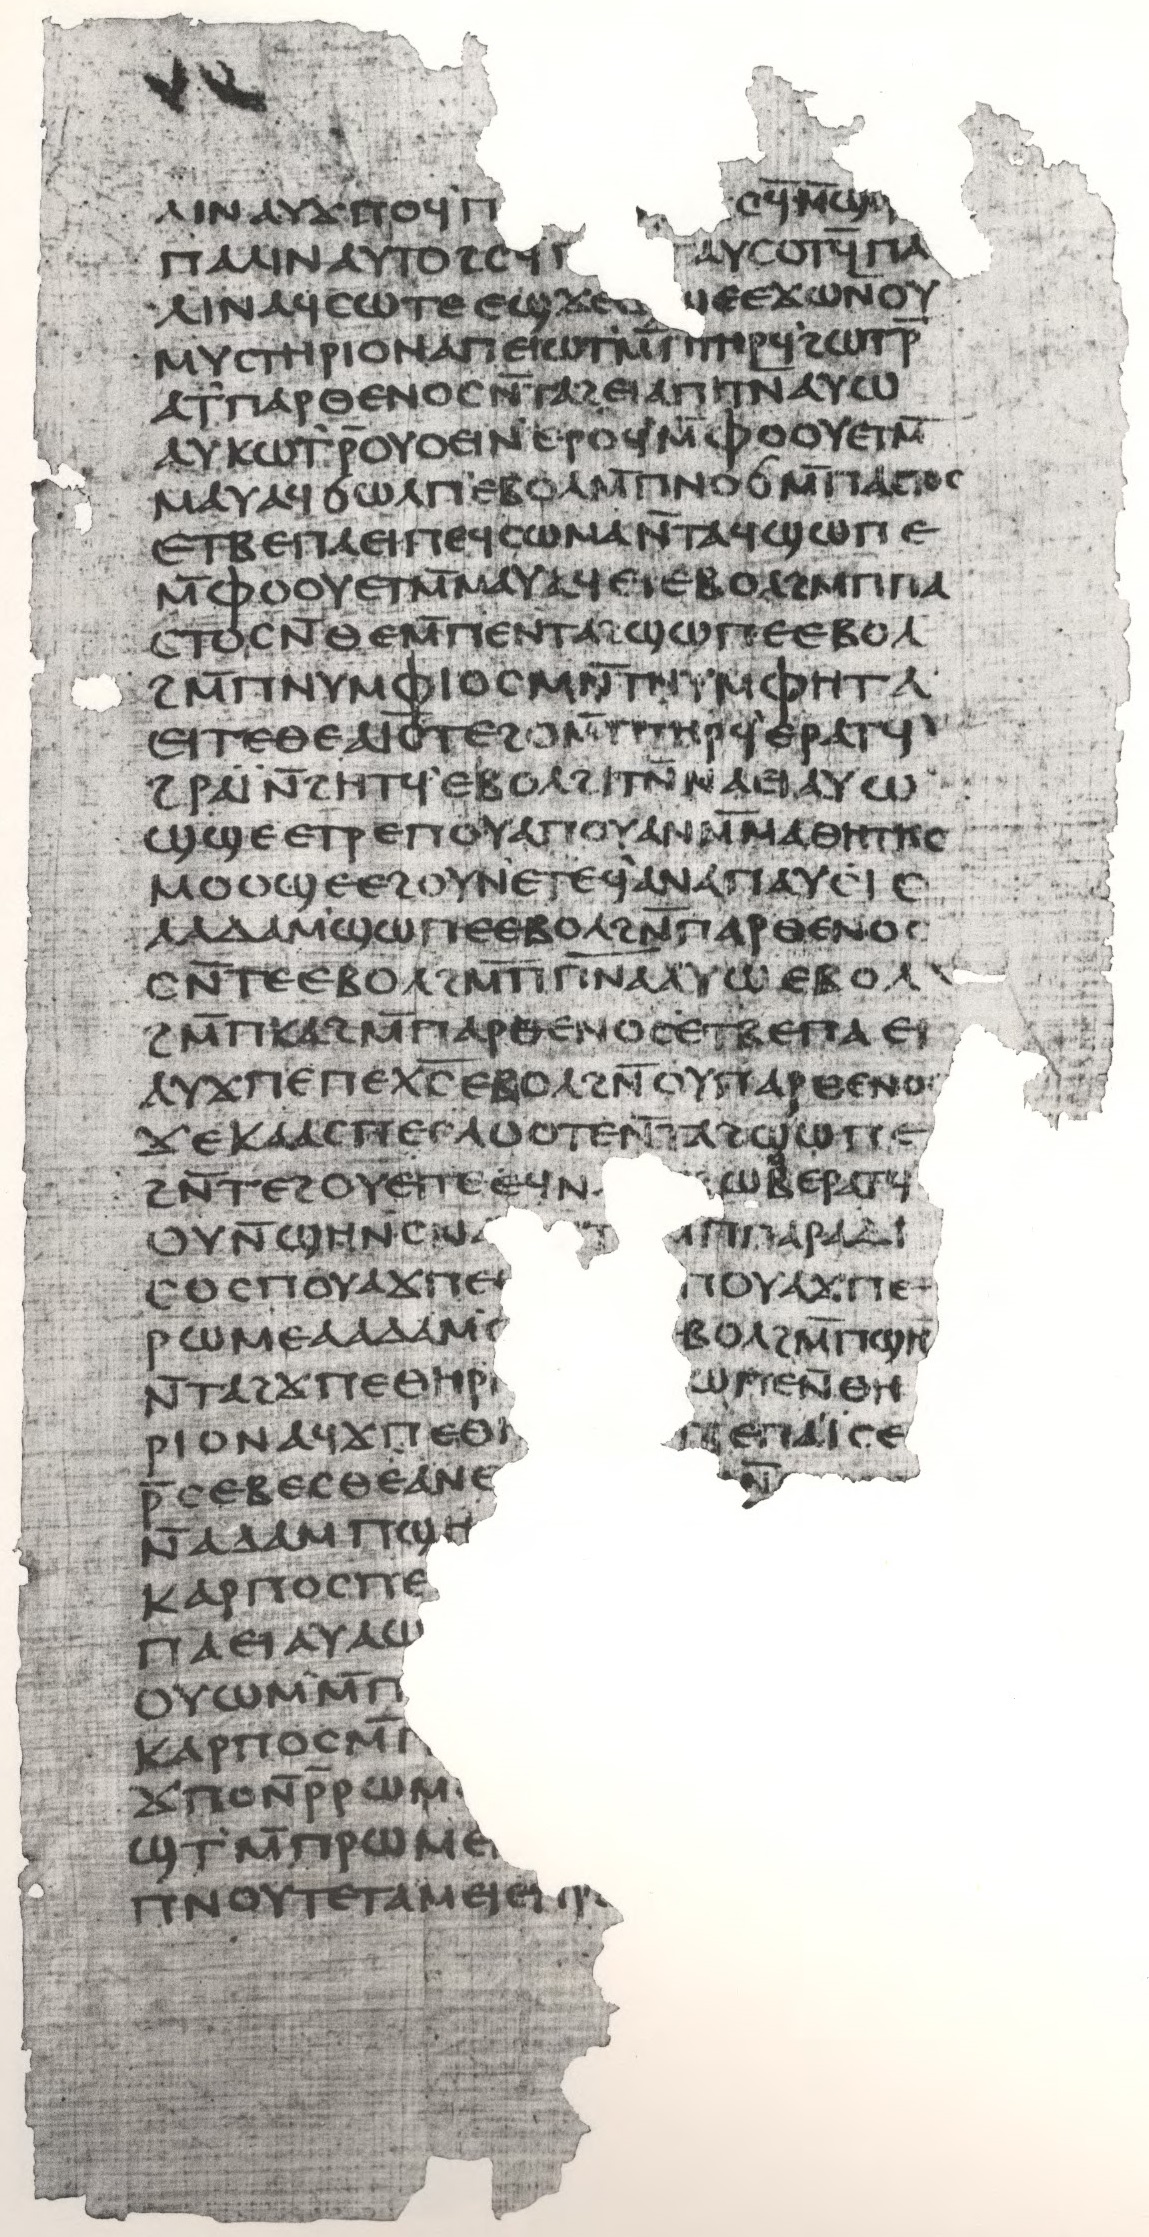 ⲗⲓⲛ ⲁⲩϫⲡⲟϥ ⲡ ⲥϥ ⲙ̅ⲡϣ
ⲡⲁⲗⲓⲛ ⲁⲩⲧⲟϩⲥϥ ⲁⲩⲥⲟⲧϥ̅ ⲡⲁ
ⲗⲓⲛ ⲁϥⲥⲱⲧⲉ ⲉϣϫⲉ ϣⲉ ⲉϫⲱ ⲛⲟⲩ
ⲙⲩⲥⲧⲏⲣⲓⲟⲛ ⲁⲡⲉⲓⲱⲧ ⲙ̅ⲡⲧⲏⲣϥ ϩⲱⲧⲣ̅
ⲁⲧⲡⲁⲣⲑⲉⲛⲟⲥ ⲛ̅ⲧⲁϩⲉⲓ ⲁⲡⲓⲧⲛ̅ ⲁⲩⲱ
ⲁⲩⲕⲱⲧ ⲣ̅ⲟⲩⲟⲉⲓⲛ ⲉⲣⲟϥ ⲙ̅ⲫⲟⲟⲩ ⲉⲧⲙ̅
ⲙⲁⲩ ⲁϥϭⲱⲗⲡ ⲉⲃⲟⲗ ⲙ̅ⲡⲛⲟϭ ⲙ̅ⲡⲁⲥⲧⲟⲥ
ⲉⲧⲃⲉ ⲡⲁⲉⲓ ⲡⲉϥⲥⲱⲙⲁ ⲛ̅ⲧⲁϥϣⲱⲡⲉ
ⲙ̅ⲫⲟⲟⲩ ⲉⲧⲙ̅ⲙⲁⲩ ⲁϥⲉⲓ ⲉⲃⲟⲗ ϩⲙ ⲡⲡⲁ
ⲥⲧⲟⲥ ⲛ̅ⲑⲉ ⲙ̅ⲡⲉⲛⲧⲁϩϣⲱⲡⲉ ⲉⲃⲟⲗ
ϩⲙ̅ ⲡⲛⲩⲙⲫⲓⲟⲥ ⲙⲛ̅ ⲧⲛⲩⲙⲫⲏ ⲧⲁ
ⲉⲓ ⲧⲉ ⲑⲉ ⲁⲓⲥ̅ ⲧⲉϩⲟ ⲙ̅ⲡⲧⲏⲣϥ ⲉⲣⲁⲧϥ
ϩⲣⲁⲓ̈ ⲛ̅ϩⲏⲧϥ ⲉⲃⲟⲗ ϩⲓⲧⲛ̅ ⲛⲁⲉⲓ ⲁⲩⲱ
ϣϣⲉ ⲉⲧⲣⲉⲡⲟⲩⲁ ⲡⲟⲩⲁ ⲛⲙ̅ⲙⲁⲑⲏⲧⲏⲥ
ⲙⲟⲟϣⲉ ⲉϩⲟⲩⲛ ⲉⲧⲉϥⲁⲛⲁⲡⲁⲩⲥⲓⲥ
ⲁⲁⲇⲁⲙ ϣⲱⲡⲉ ⲉⲃⲟⲗ ϩⲛ̅ ⲡⲁⲣⲑⲉⲛⲟⲥ
ⲥⲛ̅ⲧⲉ ⲉⲃⲟⲗ ϩⲙ̅ ⲡⲡⲛ̅ⲁ ⲁⲩⲱ ⲉⲃⲟⲗ
ϩⲙ̅ ⲡⲕⲁϩ ⲙ̅ⲡⲁⲣⲑⲉⲛⲟⲥ ⲉⲧⲃⲉ ⲡⲁⲉⲓ
ⲁⲩϫⲡⲉ ⲡⲉⲭⲥ̅ ⲉⲃⲟⲗ ϩⲛ̅ ⲟⲩⲡⲁⲣⲑⲉⲛⲟⲥ
ϫⲉⲕⲁⲁⲥ ⲡⲉⲥⲗⲟⲟⲧⲉ ⲛ̅ⲧⲁϩϣⲱⲡⲉ
ϩⲛ̅ ⲧⲉϩⲟⲩⲉⲓⲧⲉ ⲉϥⲛ ⲱϩⲉ ⲉⲣⲁⲧϥ
ⲟⲩⲛ̅ ϣⲏⲛ ⲥⲛⲁ ⲙⲡⲡⲁⲣⲁⲇⲓ
ⲥⲟⲥ ⲡⲟⲩⲁ ϫⲡⲉ ⲡⲟⲩⲁ ϫⲡⲉ
ⲣⲱⲙⲉ ⲁⲁⲇⲁⲙ ⲃⲟⲗ ϩⲙ̅ ⲡϣⲏⲛ
ⲛ̅ⲧⲁϩϫⲡⲉ ⲑⲏⲣⲓ ⲱⲡⲉ ⲛ̅ⲑⲏ
ⲣⲓⲟⲛ ⲁϥϫⲡⲉ ⲑⲏ ⲉ ⲡⲁⲓ̈ ⲥⲉ
ⲣ̅ⲥⲉⲃⲉⲥⲑⲉ ⲁⲛⲉ ⲛ̅
ⲛ̅ⲁⲇⲁⲙ ⲡϣⲏ
ⲕⲁⲣⲡⲟⲥ ⲡⲉ
ⲡⲁⲉⲓ ⲁⲩⲁϣ
ⲟⲩⲱⲙ ⲙ̅ⲡ
ⲕⲁⲣⲡⲟⲥ ⲙ̅ⲡ
ϫⲡⲟ ⲛ̅ⲣ̅ⲣⲱⲙ
ϣⲧ ⲙ̅ⲡⲣⲱⲙⲉ
ⲡⲛⲟⲩⲧⲉ ⲧⲁⲙⲉⲓⲉ ⲡⲣ